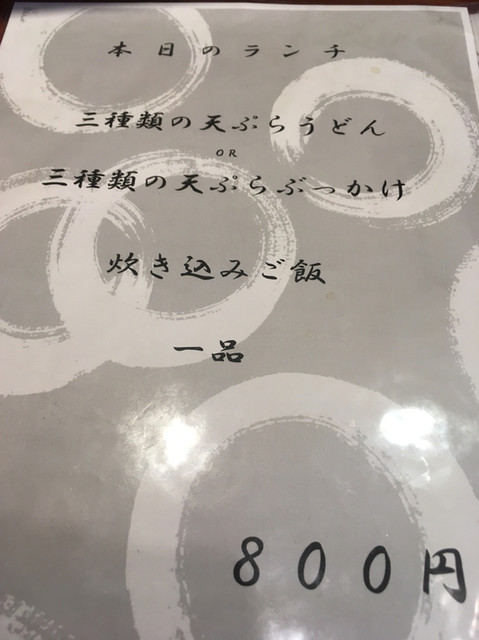 本日のランチ
三種類の天ぷらうどん
OR
三種類の天ぷらぶっかけ
炊き込みご飯
一品
800円